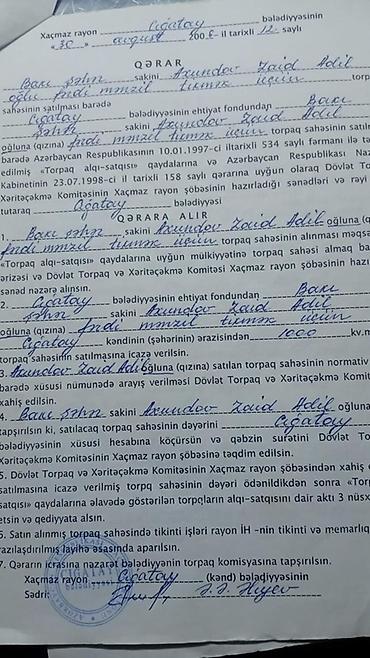 Xaçmaz rayon Cığatay bələdiyyəsinin
"30" avqust 200 il tarixli 12 saylı
QƏRAR
Bakı şəhr sakini Axundov Zaid Adil
oğlu fərdi mənzil tikmək üçün torp
sahəsinin satılması barədə
Cığatay bələdiyyəsinin ehtiyat fondundan Bakı
şəhr sakini Axundov Zaid Adil
oğluna (qızına) fərdi mənzil tikmək üçün torpaq sahəsinin satılm
barədə Azərbaycan Respublikasının 10.01.1997-ci iltarixli 534 saylı fərmanı ilə tə
edilmiş «Torpaq alqı-satqısı» qaydalarına və Azərbaycan Respublikası Naz
Kabinetinin 23.07.1998-ci il tarixli 158 saylı qərarına uyğun olaraq Dövlət To
Xəritəçəkmə Komitəsinin Xaçmaz rayon şöbəsinin hazırladığı sənədləri və rəyi
tutaraq Cığatay bələdiyyəsi
QƏRARA ALIR
1. Bakı şəhr sakini Axundov Zaid Adil oğluna (q
fərdi mənzil tikmək üçün torpaq sahəsinin alınması məqsə
«Torpaq alqı-satqısı» qaydalarına uyğun mülkiyyətinə torpaq sahəsi almaq ba
ərizəsi və Dövlət Torpaq və Xəritəçəkmə Komitəsi Xaçmaz rayon şöbəsinin hazı
sənəd nəzərə alınsın.
2. Cığatay bələdiyyəsinin ehtiyat fondundan Bakı
şəhr sakini Axundov Zaid Adil
oğluna (qızına) fərdi mənzil tikmək üçün
Cığatay kəndinin (şəhərinin) ərazisindən 1000 kv.m
torpaq sahəsinin satılmasına icazə verilsin.
3. Axundov Zaid Adil oğluna (qızına) satılan torpaq sahəsinin normativ
barədə xüsusi nümunədə arayış verilməsi Dövlət Torpaq və Xəritəçəkmə Komit
xahiş edilsin.
4. Bakı şəhr sakini Axundov Zaid Adil oğluna
tapşırılsın ki, satılacaq torpaq sahəsinin dəyərini Cığatay
bələdiyyəsinin xüsusi hesabına köçürsün və qəbzin surətini Dövlət To
Xəritəçəkmə Komitəsinin Xaçmaz rayon şöbəsinə təqdim edilsin.
5. Dövlət Torpaq və Xəritəçəkmə Komitəsinin Xaçmaz rayon şöbəsindən xahiş e
satılmasına icazə verilmiş torpq sahəsinin dəyəri ödənildikdən sonra «Torp
satqısı» qaydalarına əlavədə göstərilən torpqların alqı-satqısını dair aktı 3 nüsx
etsin və qediyyata alsın.
6. Satın alınmış torpaq sahəsində tikinti işləri rayon İH -nin tikinti və memarlıq
razılaşdırılmış layihə əsasında aparılsın.
7. Qərarın icrasına nəzarət bələdiyyənin torpaq komisyasına tapşırılsın.
Xaçmaz rayon Cığatay (kənd) bələdiyyəsinin
Sədri:
CIĞATAY